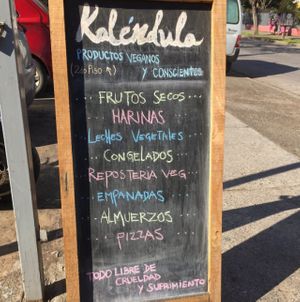 Kaléndula
PRODUCTOS VEGANOS
(2do PISO ↑) Y CONSCIENTES
FRUTOS SECOS
HARINAS
LECHES VEGETALES
CONGELADOS
REPOSTERÍA VEG
EMPANADAS
ALMUERZOS
PIZZAS
TODO LIBRE DE
CRUELDAD
Y SUFRIMIENTO